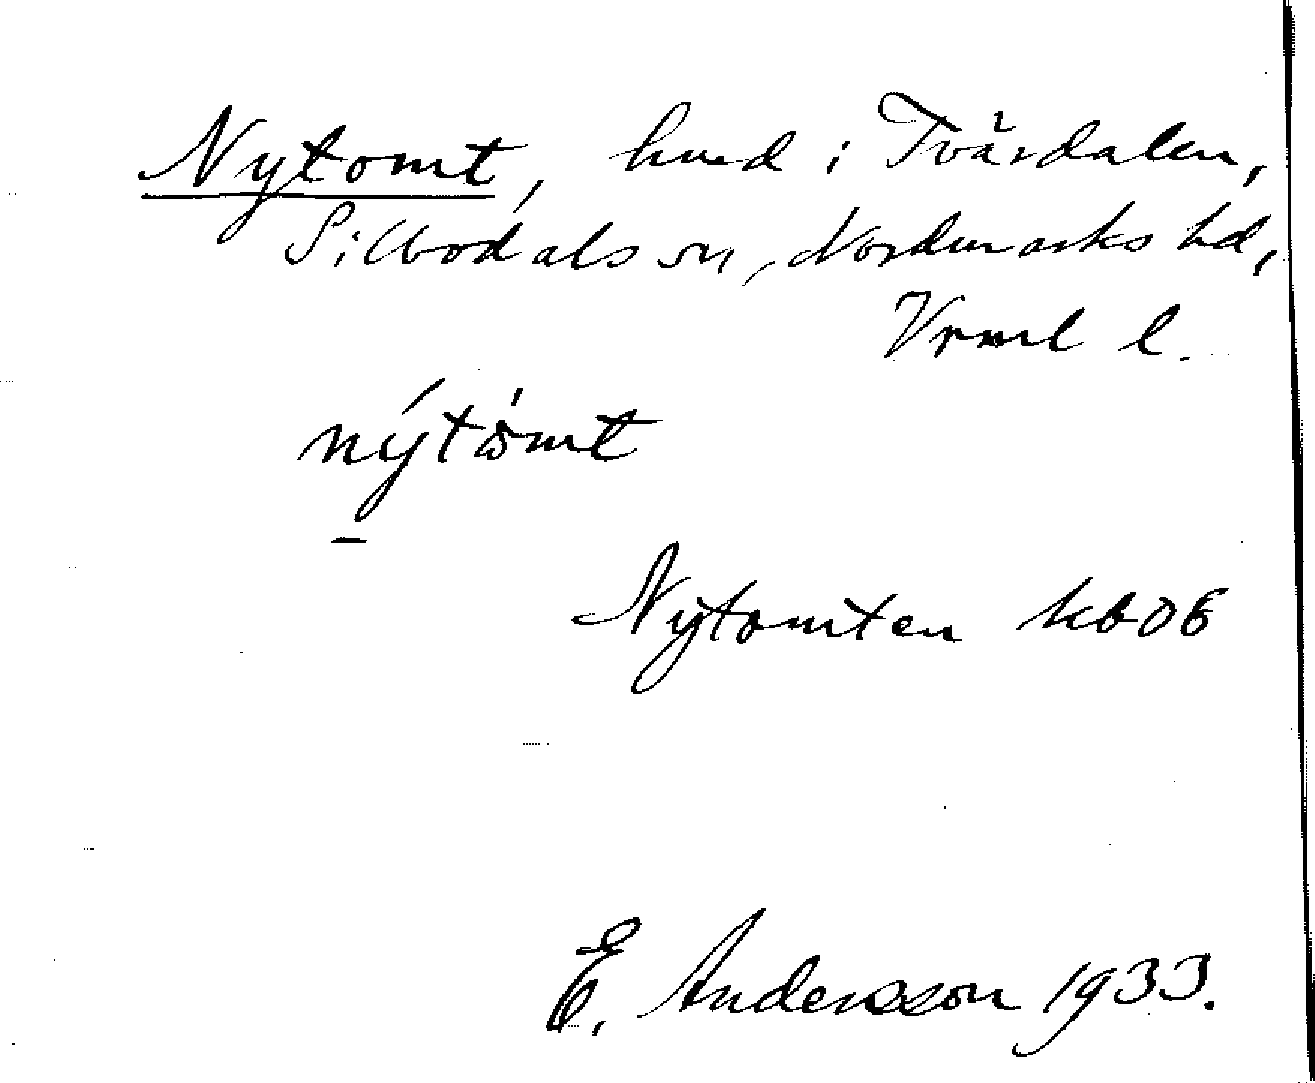 Nytomt, hmd i Tvärdalen,
Silbodals sn, Nordmarks hd,
Vrml l.
nýtòmt
Nytomten kb06
E. Andersson 1933.